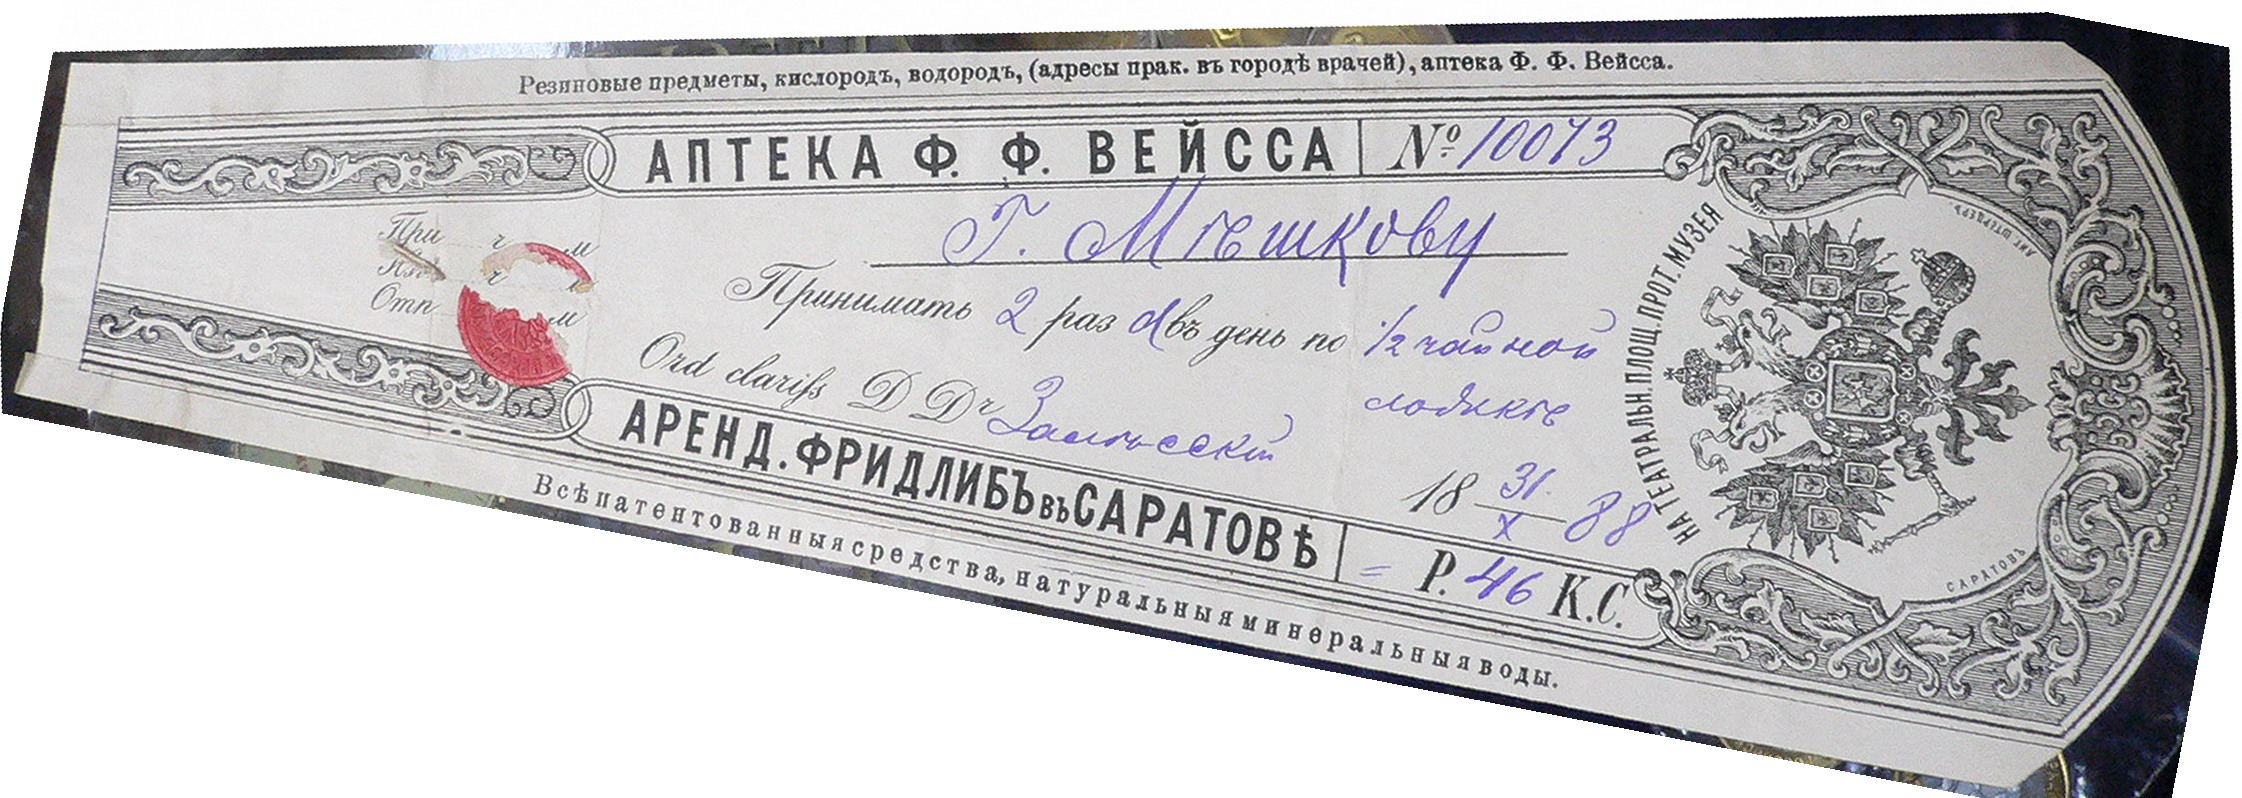 Резиновые предметы, кислородъ, водородъ, (адресы прак. въ городѣ врачей), аптека Ф. Ф. Вейсса.
АПТЕКА Ф. Ф. ВЕЙССА № 10073
Г. Мѣшкову
При ч м
ч
Отп м
Принимать 2 раз а въ день по 1/2 чайной
ложкѣ
Ord clariss D Dr
18 31/X 88
АРЕНД. ФРИДЛИБЪ въ САРАТОВѢ = Р. 46 К.С.
НА ТЕАТРАЛЬН. ПЛОЩ. ПРОТ. МУЗЕЯ
САРАТОВЪ
Всѣ патентованныя средства, натуральныя минеральныя воды.